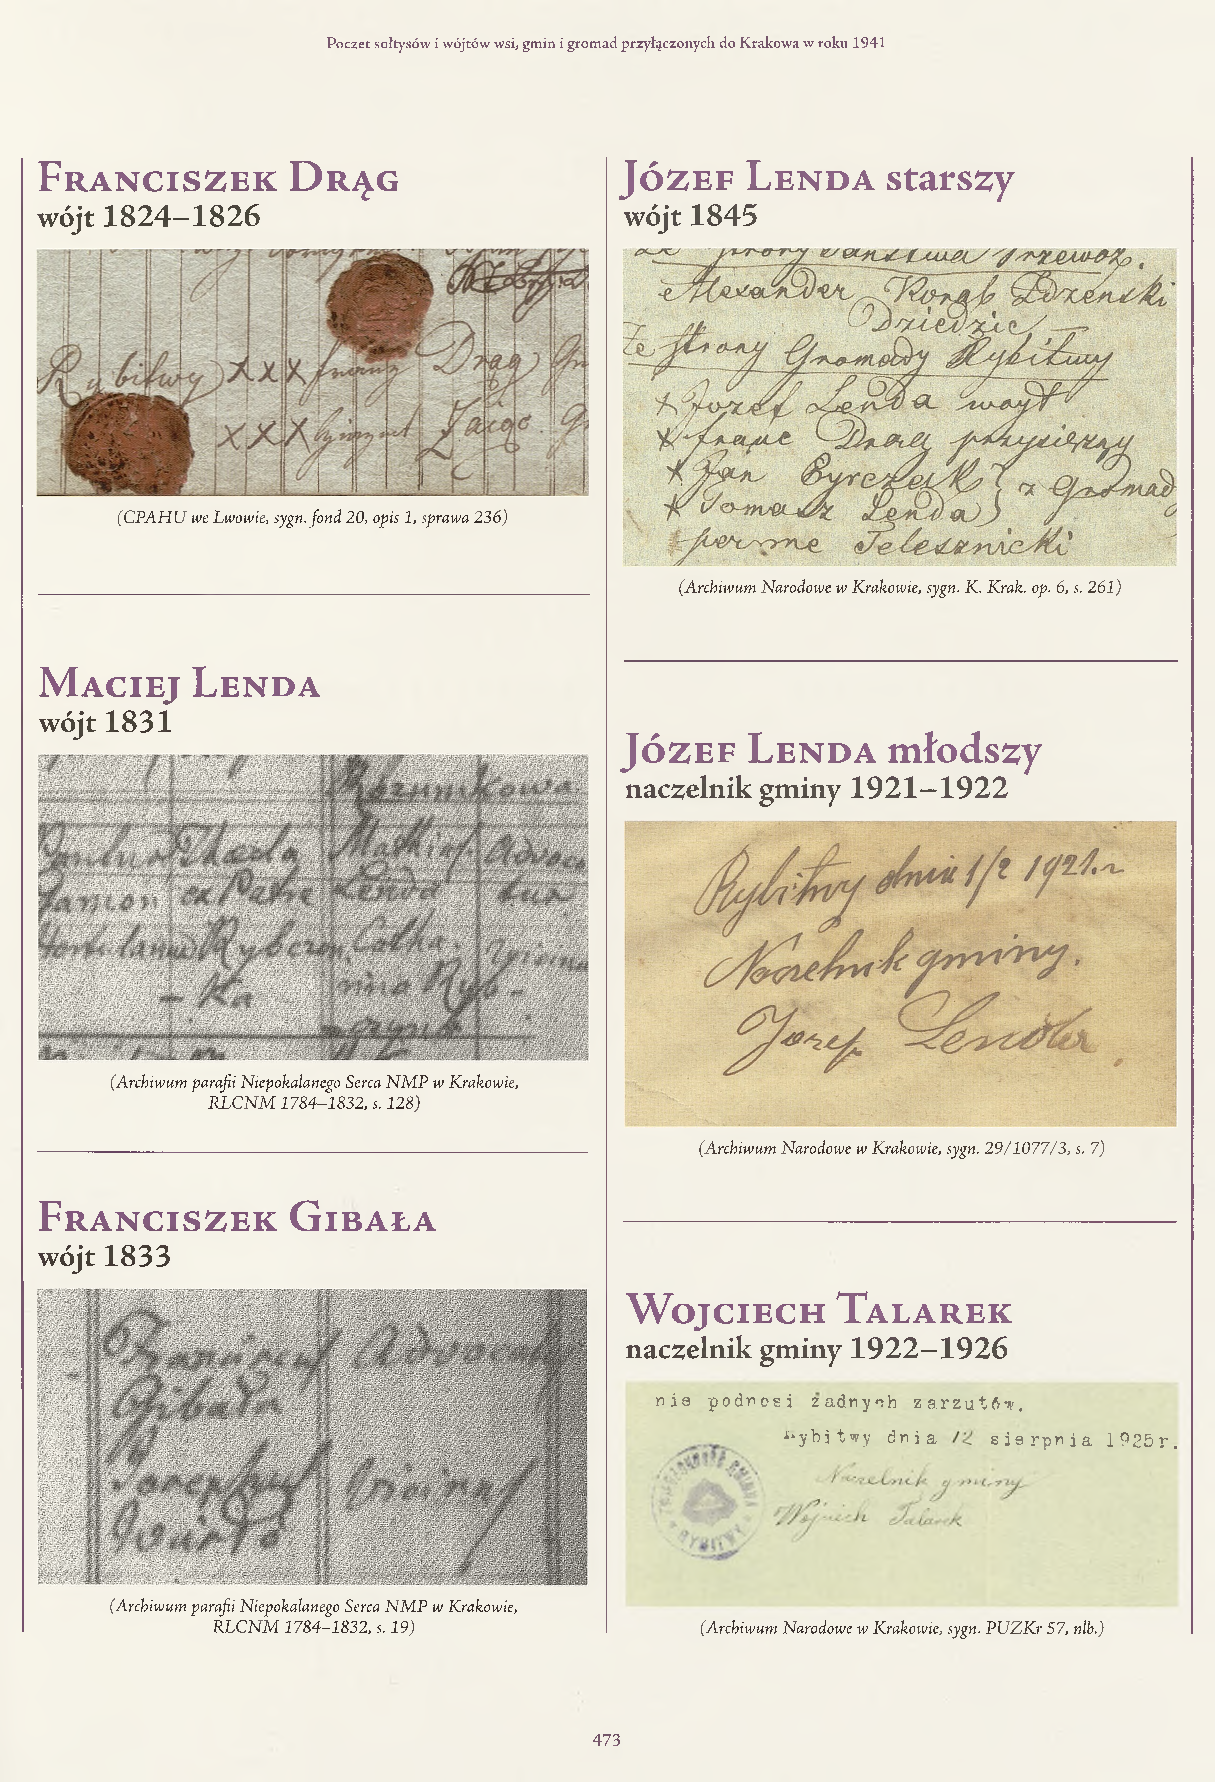 Poczet sołtysów i wójtów wsi, gmin i gromad przyłączonych do Krakowa w roku 1941
Franciszek Drąg
wójt 1824–1826
Rybitwy xxx Drąg
xxx
(CPAHU we Lwowie, sygn. fond 20, opis 1, sprawa 236)
Maciej Lenda
wójt 1831
Lenda
(Archiwum parafii Niepokalanego Serca NMP w Krakowie,
RLCNM 1784–1832, s. 128)
Franciszek Gibała
wójt 1833
Gibała
(Archiwum parafii Niepokalanego Serca NMP w Krakowie,
RLCNM 1784–1832, s. 19)
Józef Lenda starszy
wójt 1845
Ze strony Państwa Przewoz.
Alexander Korab
Dziedzic
Ze strony Gromady Rybitwy
x Jozef Lenda woyt
x franc Drag przysięzny
x Jan
x Tomasz Lenda } z Gromad
(Archiwum Narodowe w Krakowie, sygn. K. Krak. op. 6, s. 261)
Józef Lenda młodszy
naczelnik gminy 1921–1922
Rybitwy dnia 1/2 1921.r
Naczelnik gminy.
Józef Lenda
(Archiwum Narodowe w Krakowie, sygn. 29/1077/3, s. 7)
Wojciech Talarek
naczelnik gminy 1922–1926
nie podnosi żadnych zarzutów.
Rybitwy dnia 12 sierpnia 1925r.
Naczelnik gminy
Wojciech Talarek
RYBITWY
(Archiwum Narodowe w Krakowie, sygn. PUZKr 57, nlb.)
473